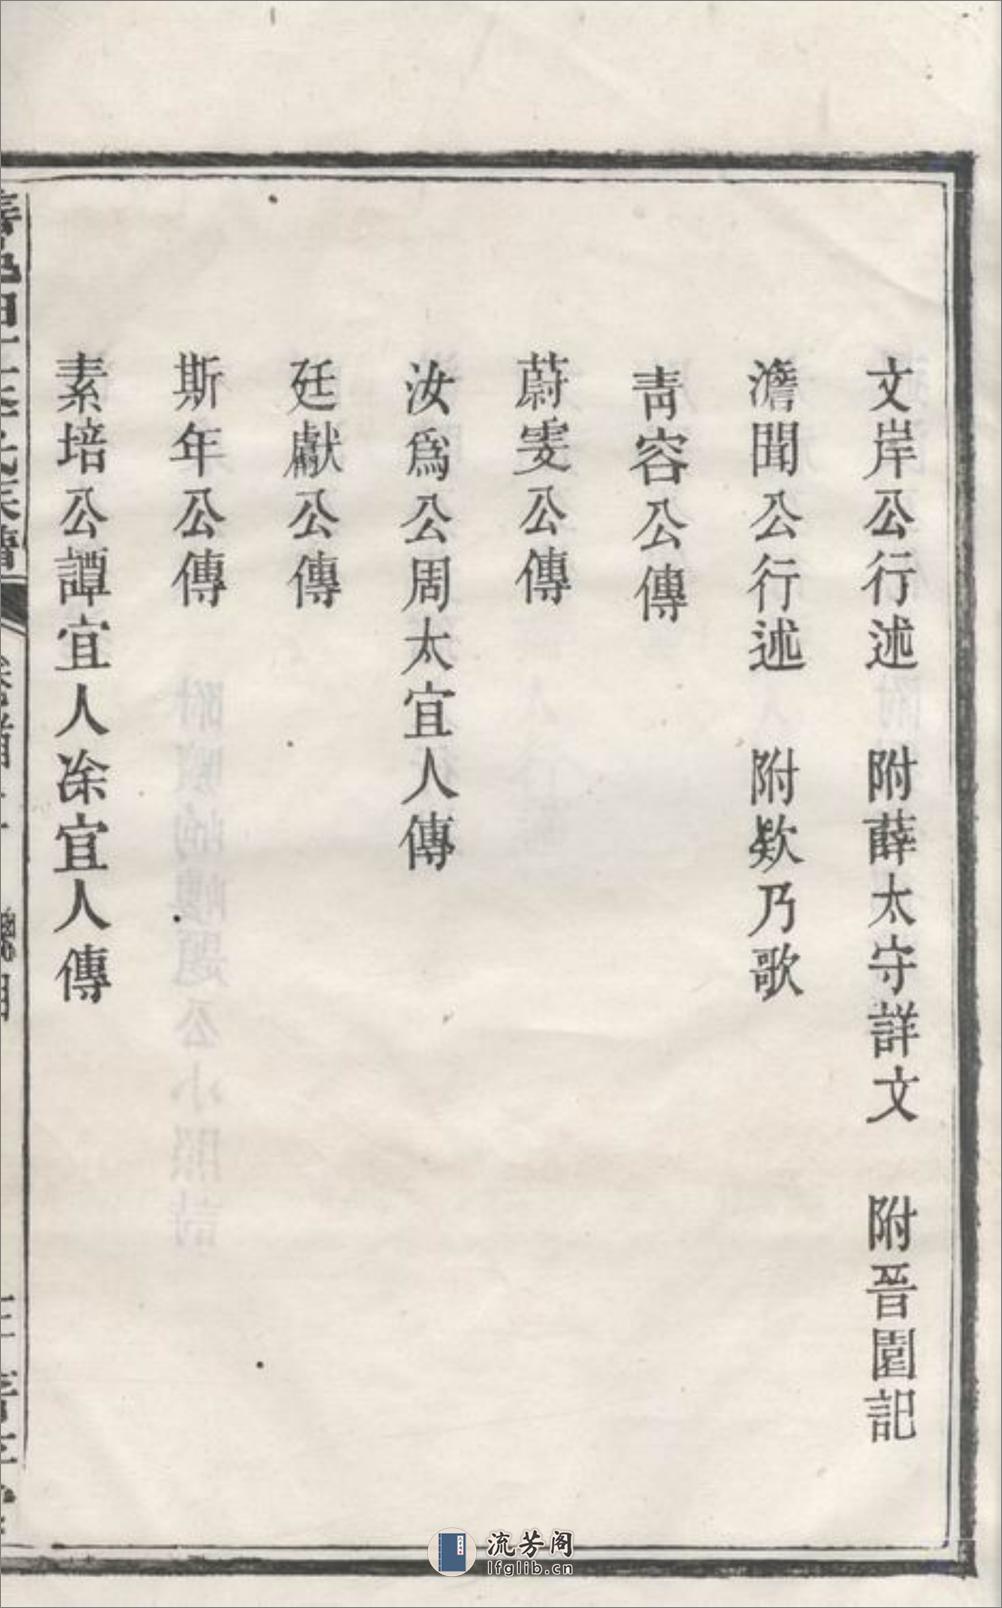 文岸公行述　附薛太守詳文　附晉園記
澹聞公行述　附欸乃歌
靑容公傳
蔚雯公傳
汝爲公周太宜人傳
廷獻公傳
斯年公傳
素培公譚宜人凃宜人傳
氏族譜
總目
流芳阁
lfglib.cn